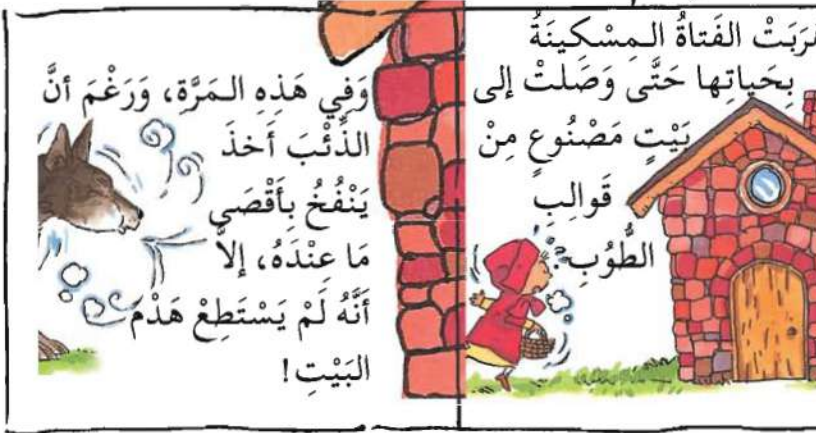 هَرَبَتْ الفَتاةُ المِسْكِينَةُ
بِحَياتِها حَتَّى وَصَلتْ إلى
بَيْتٍ مَصْنُوعٍ مِنْ
قَوالِبِ
الطُّوُبِ.
وَفِي هَذِهِ المَرَّةِ، وَرَغْمَ أنَّ
الذِّئْبَ أَخذَ
يَنْفُخُ بِأَقْصَى
مَا عِنْدَهُ، إلاَّ
أَنَّهُ لَمْ يَسْتَطِعْ هَدْمَ
البَيْتِ!